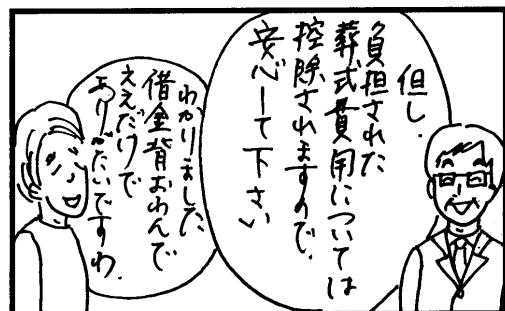 但し、
負担された
葬式費用については
控除されますので、
安心して下さい
わかりました
借金背おわんで
ええだけで
ありがたいですわ。